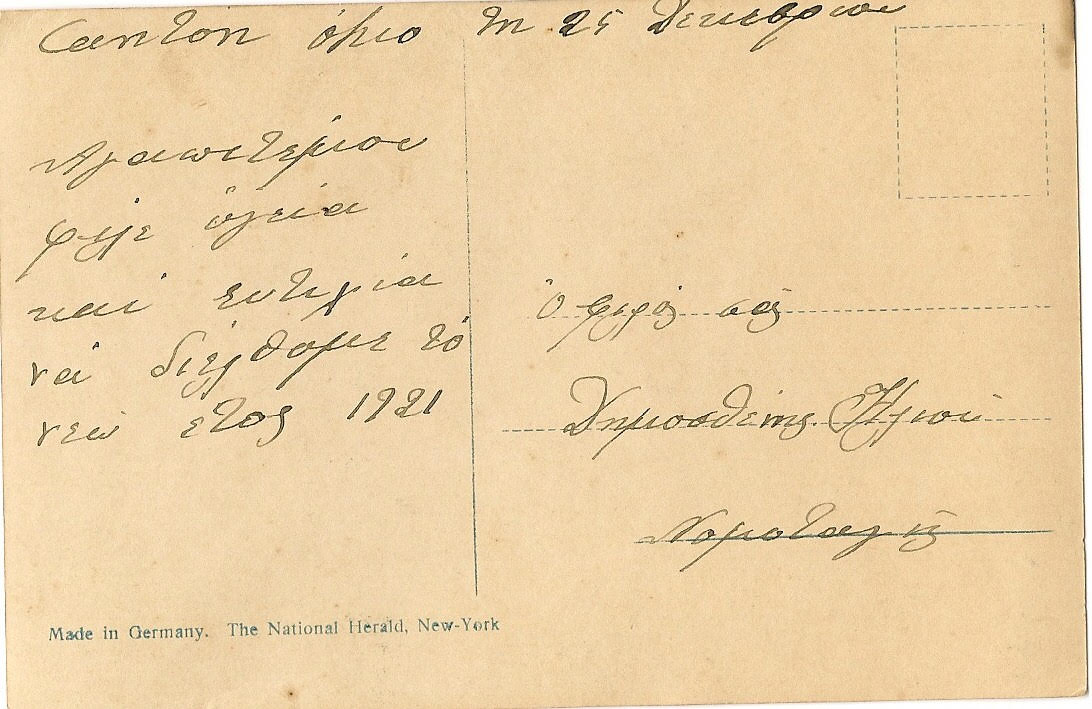 Canton όhιο τη 25 Δεκεβριου
Αγαπετέμου
φιλε ύγεία
καί ευτιχία
νά διελθομε τό
νεω ετος 1921
ό φιλος σας
Δημοσθένης Ηλιού
Made in Germany. The National Herald, New-York